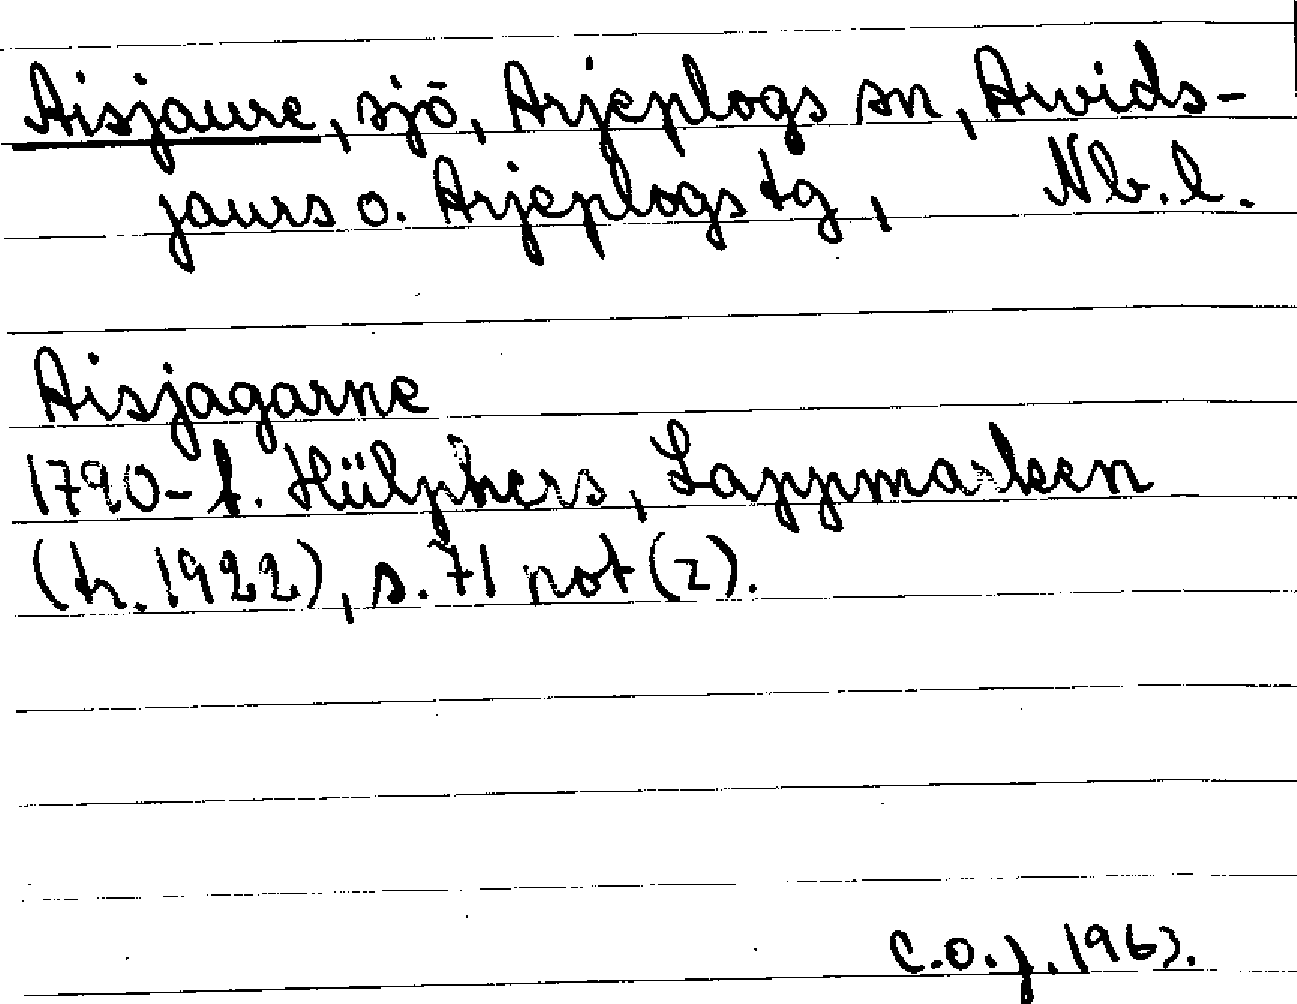 Aisjaure, sjö, Arjeplogs sn, Arvids-
jaurs o. Arjeplogs tg, Nb.l.
Aisjagarne
1790-t. Hülphers, Lappmarken
(tr. 1922), s. 71 not (2).
C.O.J. 1963.